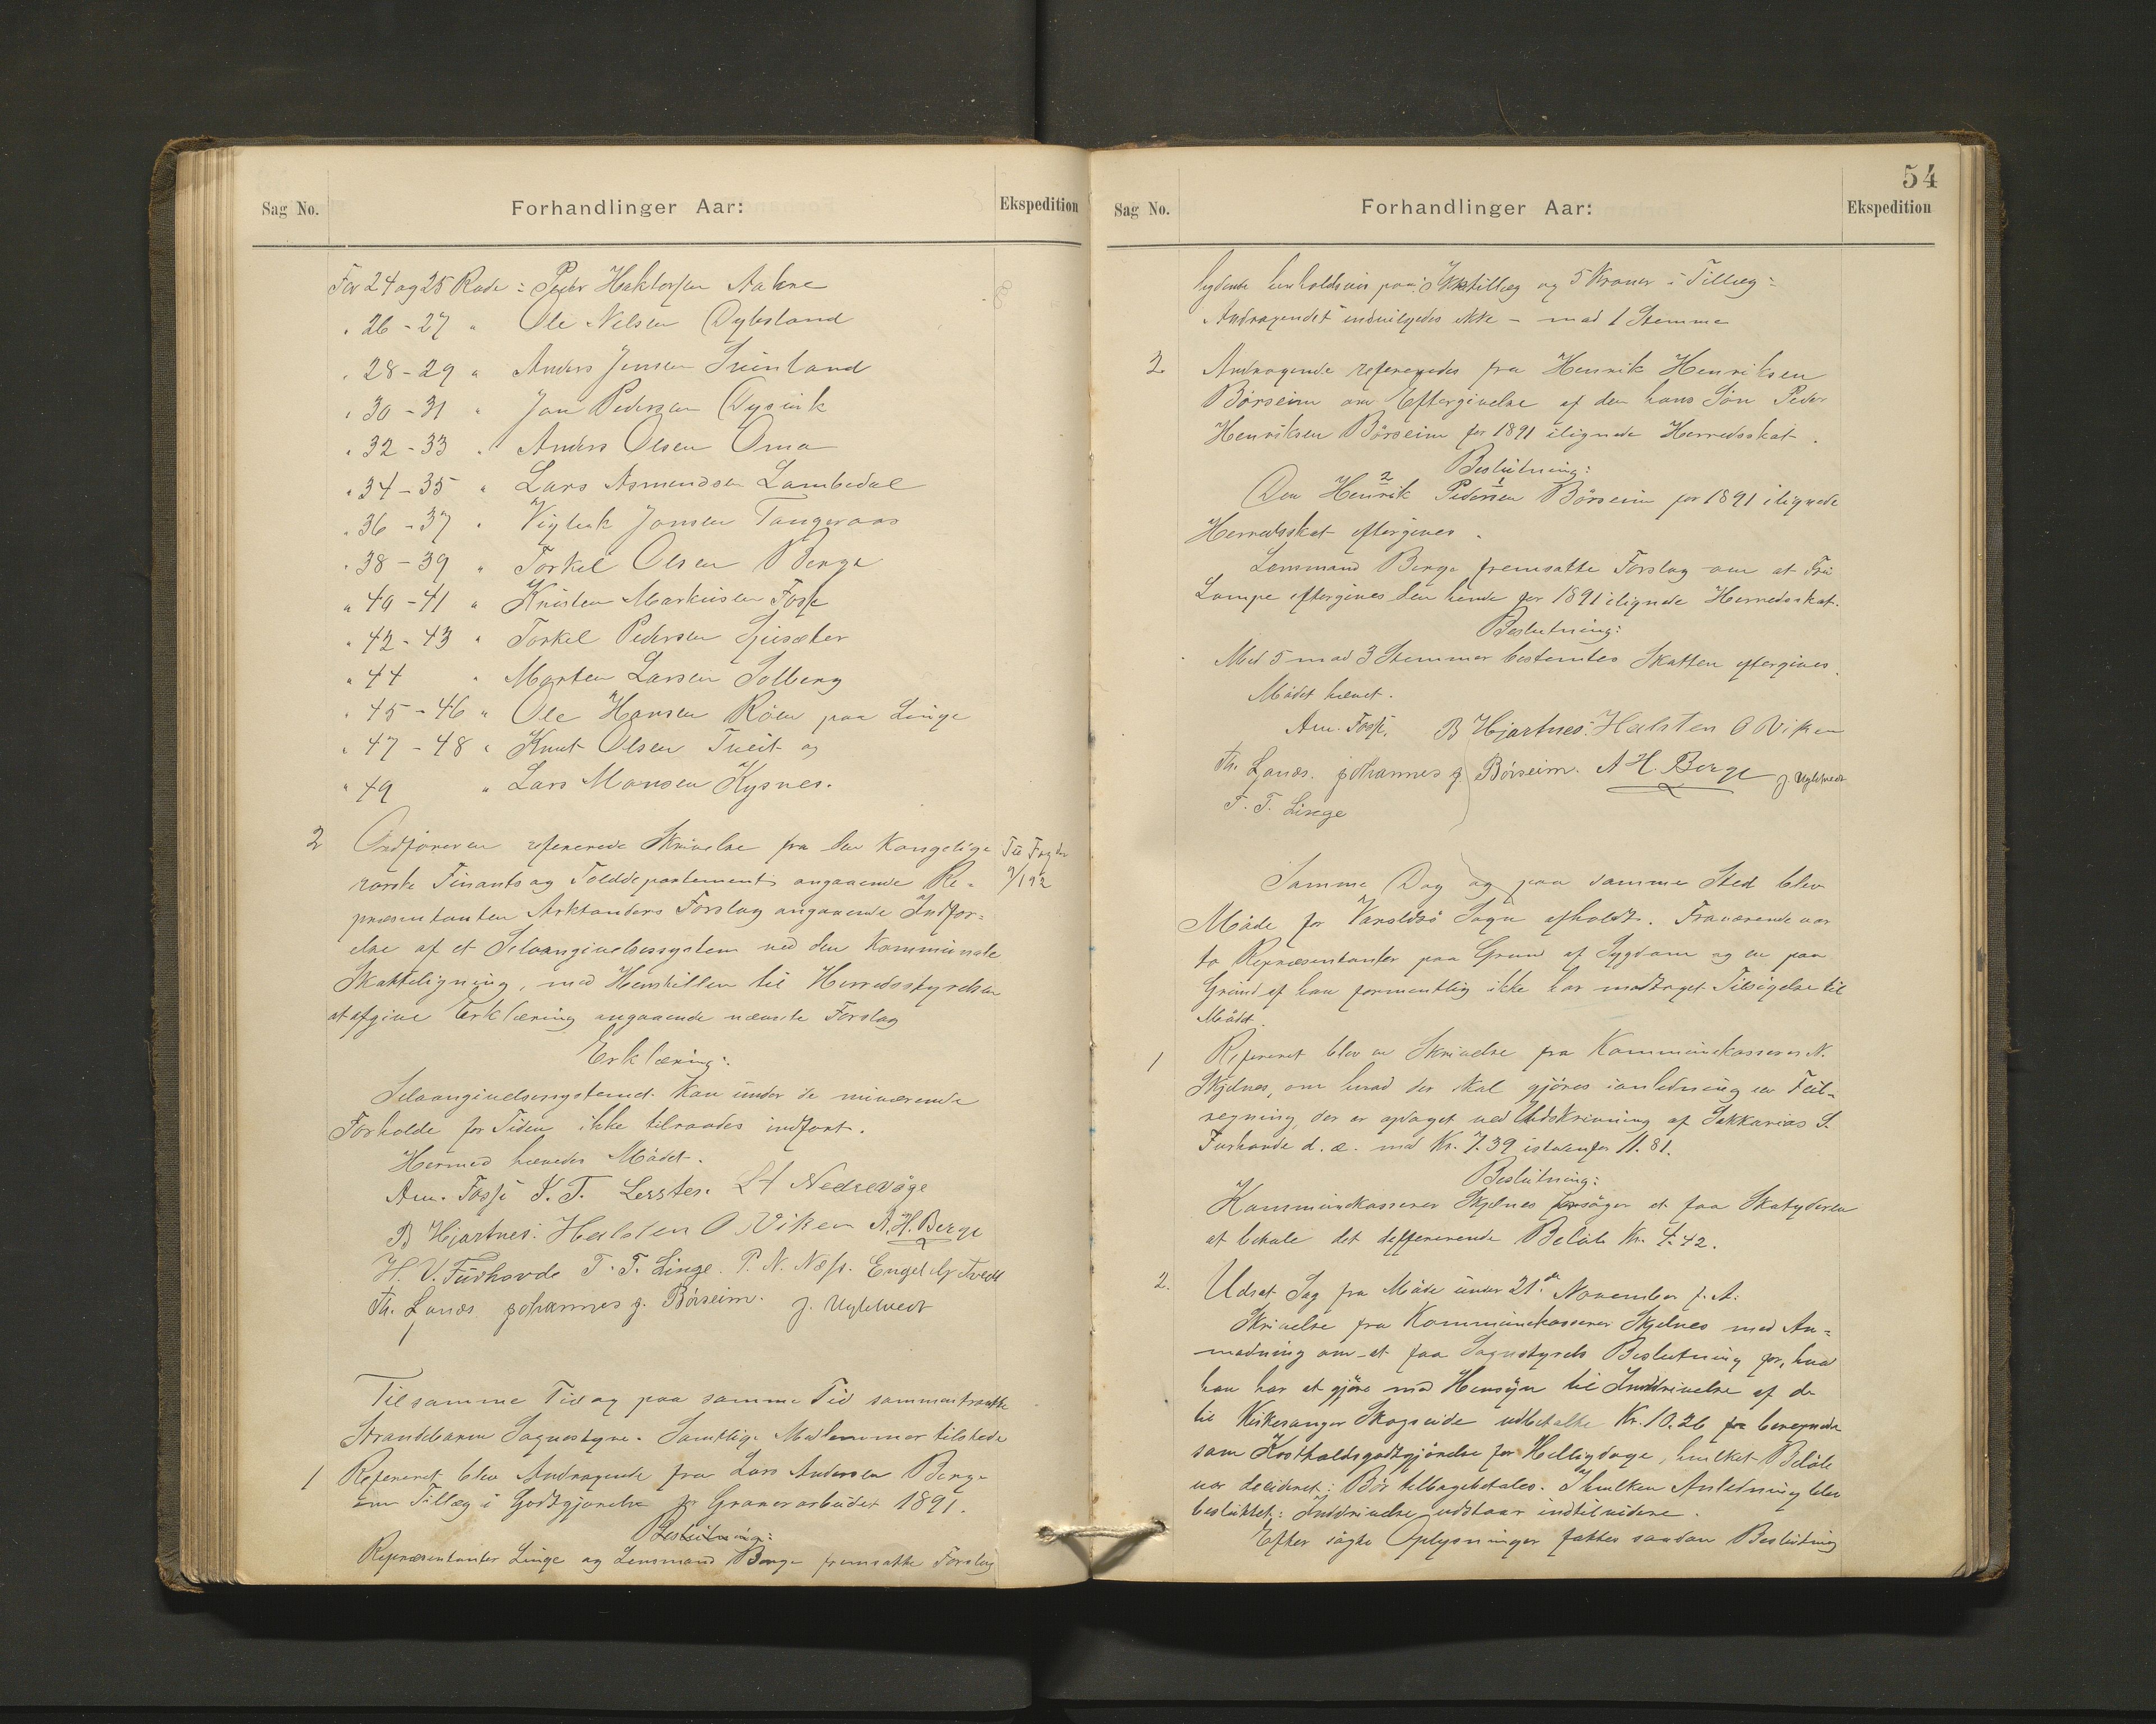 Sag No. Forhandlinger Aar: Ekspedition
For 24 og 25 Rode: Peder Haktorsen Aakre
" 26 - 27 " Ole Nelsen Dybsland
" 28 - 29 " Anders Jensen Svinland
" 30 - 31 " Jon Pedersen Dysvik
" 32 - 33 " Anders Olsen Oma
" 34 - 35 " Lars Asmundsen Lambedal
" 36 - 37 " Vigleik Jonsen Tangeraas
" 38 - 39 " Torkel Olsen Berge
" 40 - 41 " Kristen Markusen Fosse
" 42 - 43 " Torkel Pedersen Gjuseter
" 44 " Morten Larsen Solberg
" 45 - 46 " Ole Hansen Röen paa Linge
" 47 - 48 " Knut Olsen Tveit og
" 49 " Lars Monsen Kysnes.
2 Ordføreren refererede Skrivelse fra den Kongelige
norske Finants og Tolddepartement angaaende Re-
præsentanten Arktanders Forslag angaaende Indfør-
else af et Selvangivelsessystem ved den Kommunale
Skatteligning, med Henstillen til Herredsstyrelsen
at afgive Erklæring angaaende nævnte Forslag
Til Fogden
9/1 92
Erklæring:
Selvangivelsessystemet kan under de nuværende
Forholde for Tiden ikke tilraades indført.
Hermed hævedes Mödet.
Am. Fosse S. T. Lerster. LH Nedrevåge
B Hjartnes. Halsten O Viken A. H. Berge
H. V. Furhovde T. T. Linge. P. N. Næss. Engel Tvedt
Th. Lanæs Johannes J. Börseim. J. Uglhvedt
Til samme Tid og paa samme Tid sammentraadte
Strandebarm Sognestyre. Samtlige Medlemmer tilstede
1 Refereret blev Andragende fra Lars Andersen Berge
om Tillæg i Godtgjørelse for Graverarbeidet 1891.
Beslutning:
Repræsentanter Linge og Lensmand Berge fremsatte Forslag
54
Sag No. Forhandlinger Aar: Ekspedition
lydende henholdsvis paa: Ikke tillæg og 5 Kroner i Tillæg:
Andragendet indvilgedes ikke - mod 1 Stemme
2 Andragende refereredes fra Henrik Henriksen
Börseim om Eftergivelse af den hans Søn Peder
Henriksen Börseim for 1891 ilignede Herredsskat.
Beslutning:
2 1
Den Henrik Pedersen Börseim for 1891 ilignede
Herredsskat eftergives.
Lensmand Berge fremsatte Forslag om at Fru
Lampe eftergives den hende for 1891 ilignede Herredsskat.
Beslutning:
Med 5 mod 3 Stemmer bestemtes Skatten eftergives.
Mödet hævet.
Am. Fosse. B Hjartnes. Halsten O Viken
Th. Lanæs. Johannes J. Börseim. A H. Berge J. Uglhvedt
T. T. Linge
Samme Dag og paa samme Sted blev
Möde for Varaldsö Sogn afholdt. Fraværende var
to Repræsentanter paa Grund af Sygdom og en paa
Grund af han formentlig ikke har modtaget Tilsigelse til
Mödet.
1 Refereret blev en Skrivelse fra Kommunekasserer N.
Skjelnes, om hvad der skal gjöres i anledning en Feil-
regning, der er opdaget ved Udskrivning af Sakkarias S.
Furhovde d. æ. med Kr. 7.39 istedenfor 11.81.
Beslutning:
Kommunekasserer Skjelnes forsöger at faa Skatyderen
at betale det deffererende Belöb Kr. 4.42.
2. Udsat Sag fra Möde under 21de November f. A.
Skrivelse fra Kommunekasserer Skjelnes med An-
modning om at faa Sognestyrets Beslutning for, hvad
han har at gjöre med Hensyn til Inddrivelse af de
til Kirkesanger Skogseide udbetalte Kr. 10.26 for beregnede
som Kostholdsgodtgjörelse for Helligdage, hvilket Belöb
var decideret: Bör tilbagebetales. I hvilken Anledning blev
besluttet: Inddrivelse udstaar indtil videre.
Efter søgte Oplysninger fattes saadan Beslutning